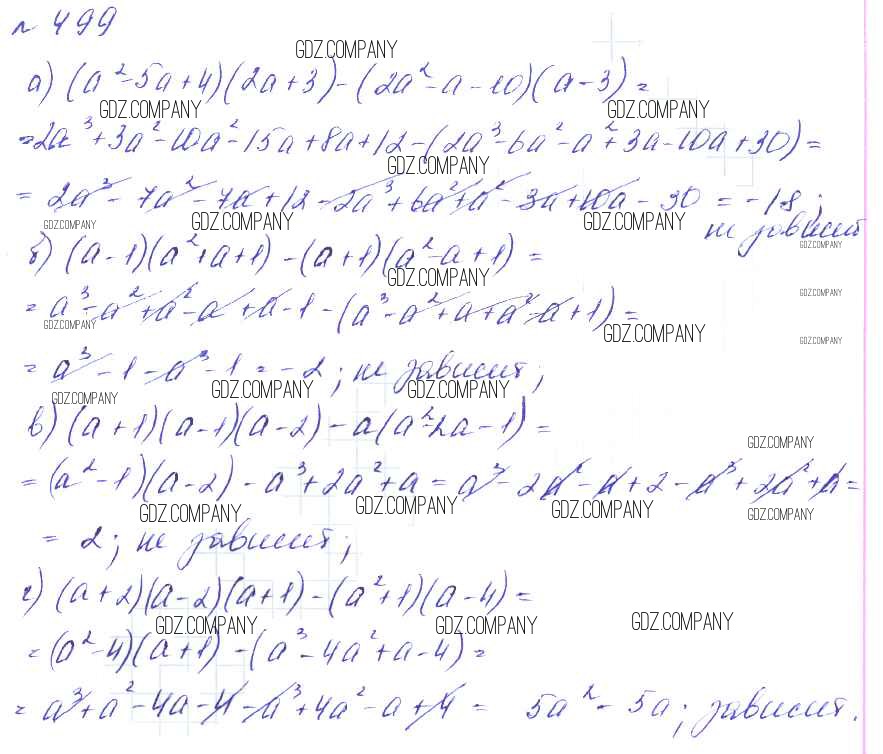 № 499
GDZ.COMPANY
а) (a²-5a+4)(2a+3)-(2a²-a-10)(a-3)=
GDZ.COMPANY GDZ.COMPANY
=2a³+3a²-10a²-15a+8a+12-(2a³-6a²-a²+3a-10a+30)=
GDZ.COMPANY
= 2a³-7a²-7a+12-2a³+6a²+a²-3a+10a-30 = -18;
GDZ.COMPANY GDZ.COMPANY GDZ.COMPANY
не зависит
GDZ.COMPANY
б) (a-1)(a²+a+1)-(a+1)(a²-a+1) =
GDZ.COMPANY
= a³-a²+a²-a+a-1-(a³-a²+a+a²-a+1) =
GDZ.COMPANY
GDZ.COMPANY GDZ.COMPANY
GDZ.COMPANY
= a³-1-a³-1 = -2; не зависит;
GDZ.COMPANY GDZ.COMPANY GDZ.COMPANY
в) (a+1)(a-1)(a-2)-a(a²-2a-1) =
GDZ.COMPANY
= (a²-1)(a-2)-a³+2a²+a = a³-2a²-a+2-a³+2a²+a=
GDZ.COMPANY GDZ.COMPANY GDZ.COMPANY GDZ.COMPANY
= 2; не зависит;
г) (a+2)(a-2)(a+1)-(a²+1)(a-4)=
GDZ.COMPANY GDZ.COMPANY GDZ.COMPANY
= (a²-4)(a+1)-(a³-4a²+a-4)=
= a³+a²-4a-4-a³+4a²-a+4 = 5a²-5a; зависит.